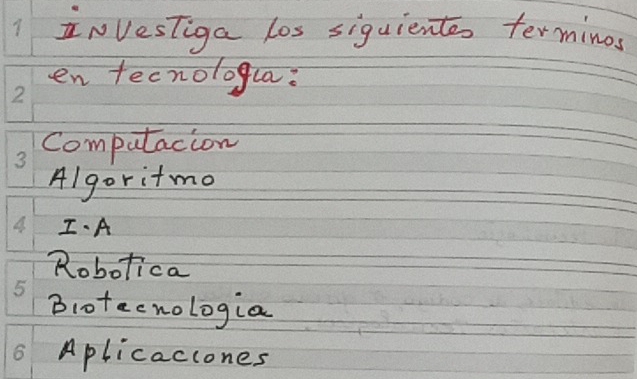 1 Investiga los siguientes terminos
2 en tecnologia:
3 Computacion
Algoritmo
4 I.A
Robotica
5 Biotecnologia
6 Aplicaciones